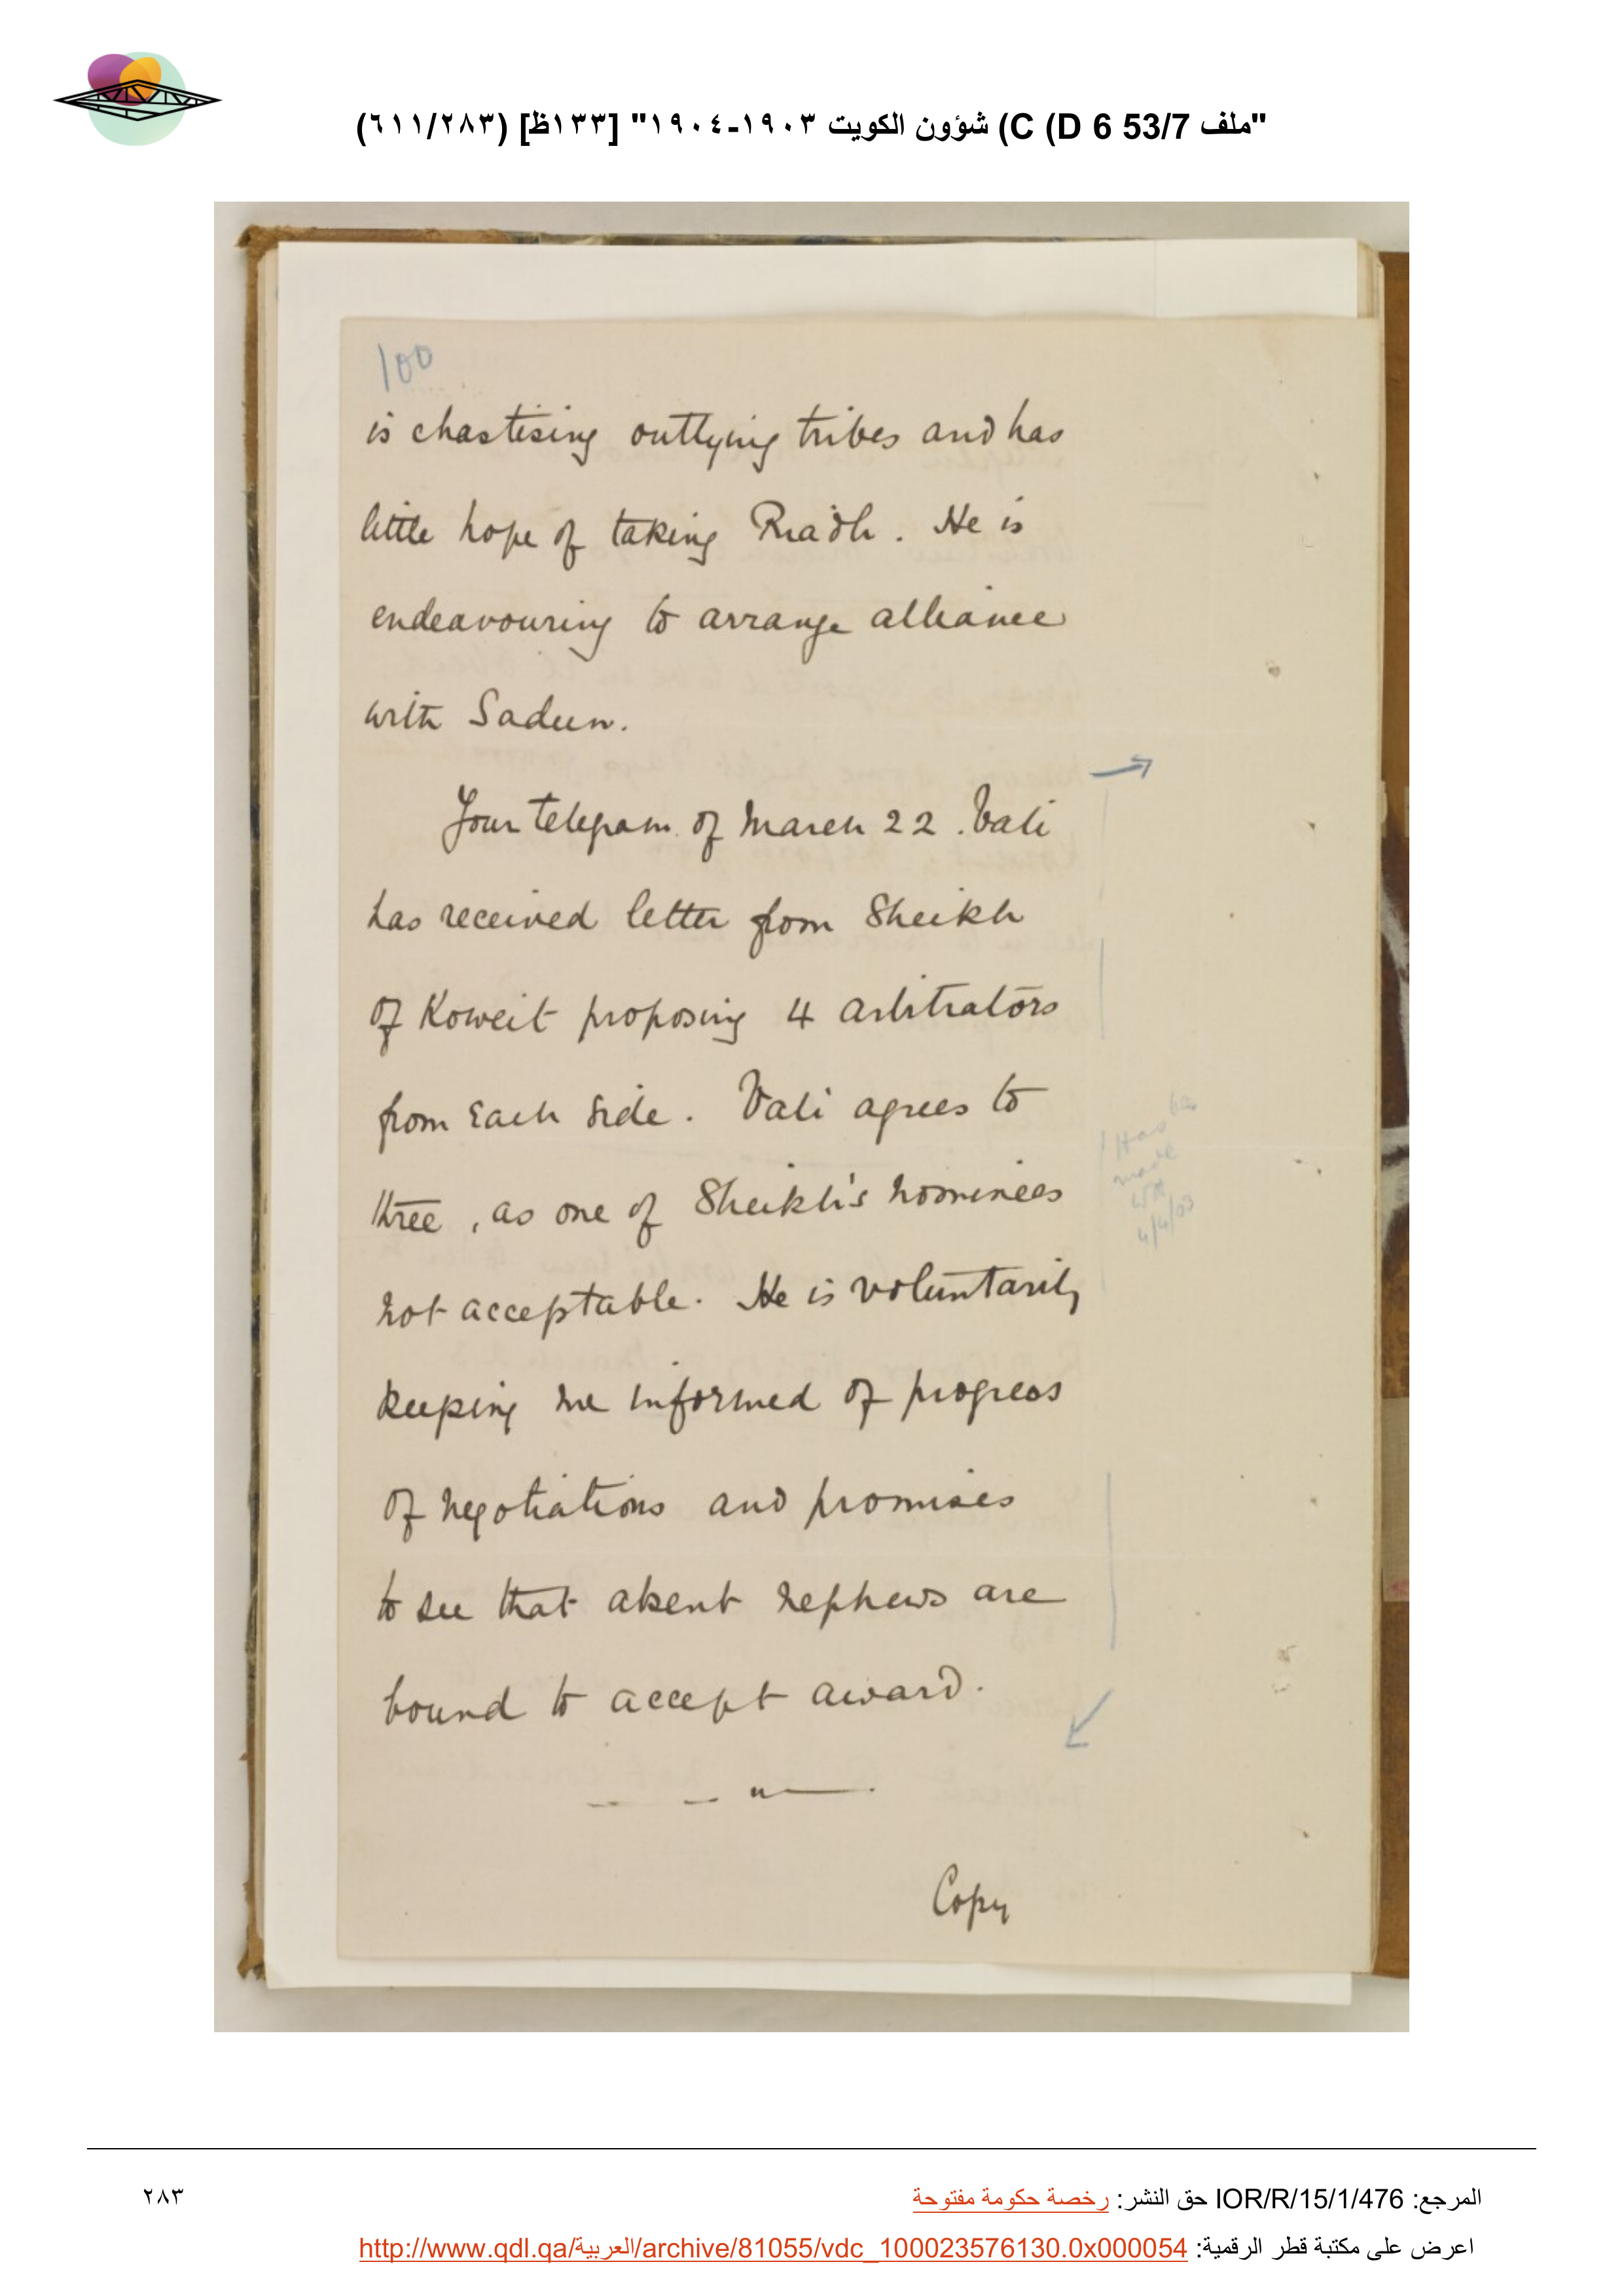 "ملف 53/7 C (D 6) شؤون الكويت ١٩٠٣-١٩٠٤" [١٣٣ظ] (٦١١/٢٨٣)
100
is chastising outlying tribes and has
little hope of taking Riadh. He is
endeavouring to arrange alliance
with Sadun.
Your telegram of March 22. Vali
has received letter from Sheikh
of Koweit proposing 4 arbitrators
from each side. Vali agrees to
three, as one of Sheikh's nominees
not acceptable. He is voluntarily
keeping me informed of progress
of negotiations and promises
to see that absent nephews are
bound to accept award.
Has
made
4/4/03
Copy
المرجع: IOR/R/15/1/476 حق النشر: رخصة حكومة مفتوحة
٢٨٣
اعرض على مكتبة قطر الرقمية: http://www.qdl.qa/العربية/archive/81055/vdc_100023576130.0x000054